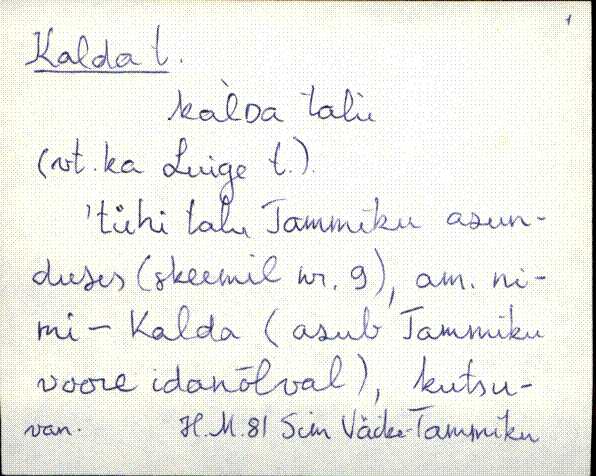 1
Kalda t.
kàlDa talu
(vt. ka Luige t.).
'tühi talu Tammiku asun-
duses (skeemil nr. 9), am. ni-
mi - Kalda (asub Tammiku
voore idanõlval), kutsu-
van. H.M. 81 Sim Väike-Tammiku